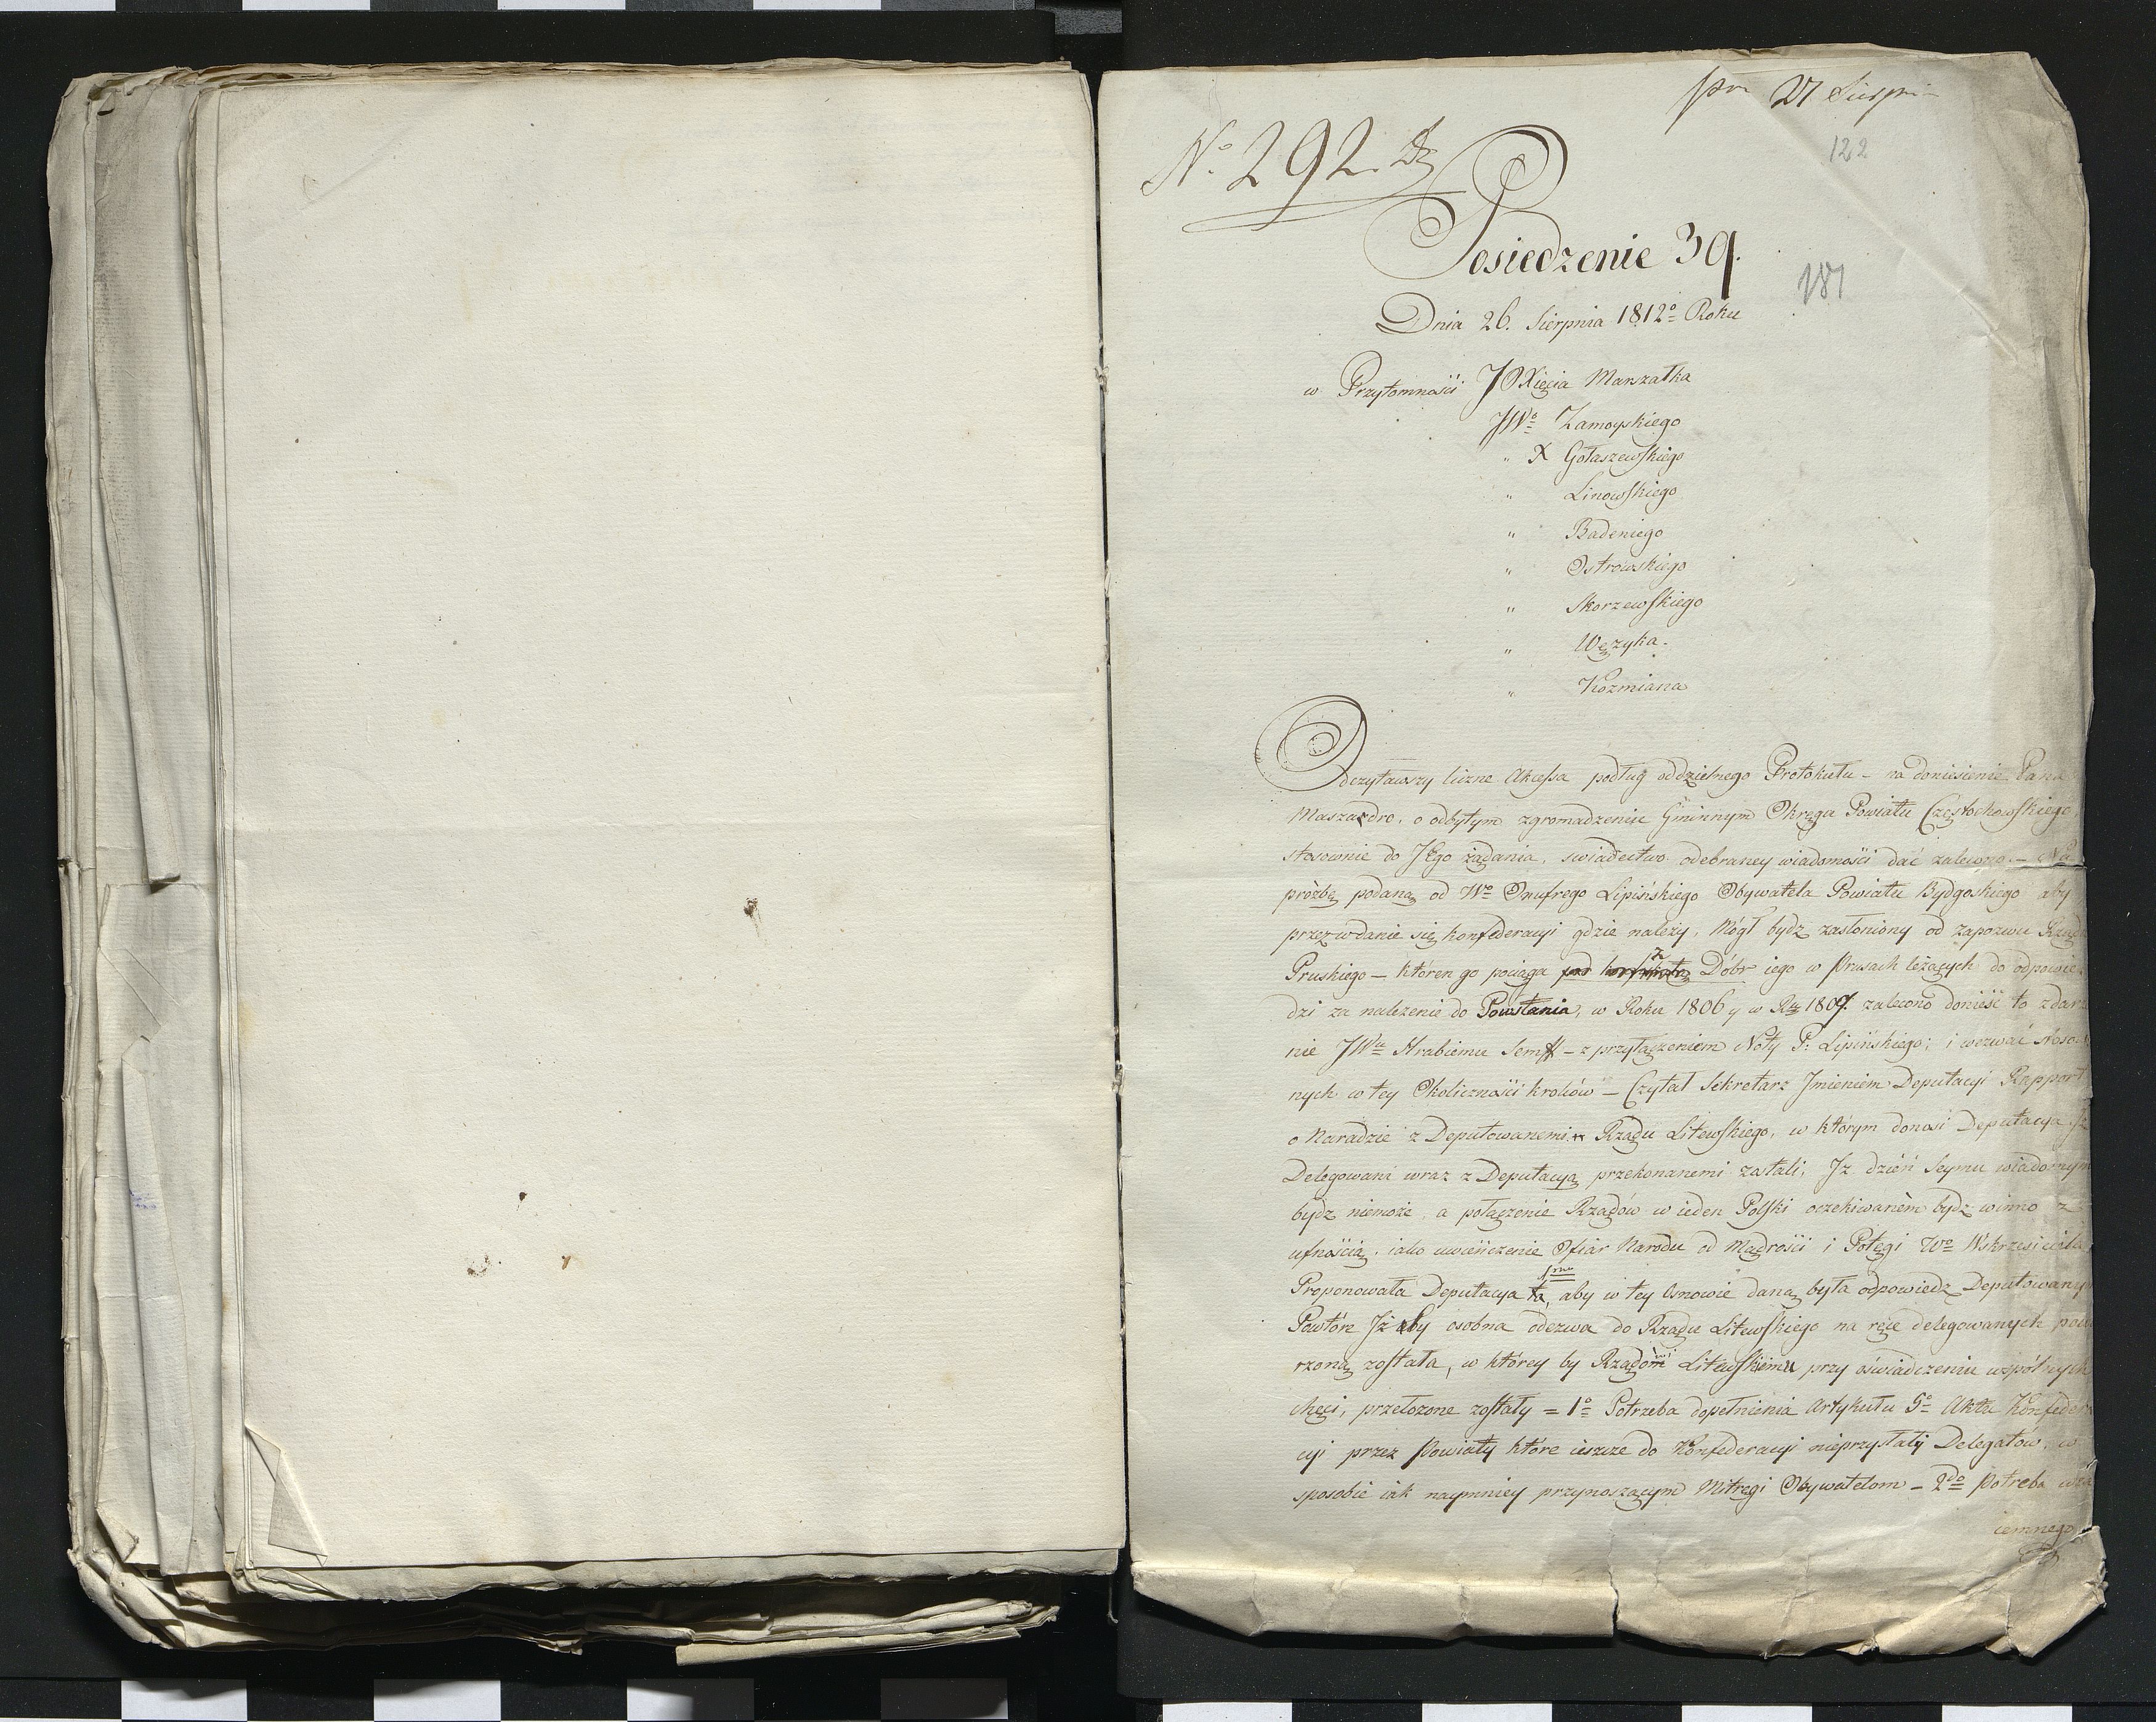 27 Sierpnia
122
No 292.
Posiedzenie 39.
181
Dnia 26. Sierpnia 1812o Roku
w Przytomności JOXięcia Marszałka
JWo Zamoyskiego
" X Gołaszewskiego
" Linowskiego
" Badeniego
" Ostrowskiego
" Skorzewskiego
" Węzyka.
" Kozmiana
Odczytawszy liczne Akcessa podług oddzielnego Protokułu – na doniesienie Pana
o odbytym zgromadzeniu Gminnym Okręgu Powiatu Częstochowskiego,
stosownie do JEgo żądania, swiadectwo odebraney wiadomości dać zalecono. – Na
prózbę podaną od Wo Onufrego Lipińskiego Obywatela Powiatu Bydgoskiego aby
przez wdanie się konfederacyi gdzie należy, Mógł bydz zasłoniony od zapozwu
Pruskiego – któren go pociąga Dóbr iego w Prusach leżących do odpowie
dzi za należenie do Powstania, w Roku 1806 y w Rku 1807. zalecono donieść to zdarze
nie JWu Hrabiemu Senfft – z przyłączeniem Noty P: Lipińskiego; i wezwać stosow
nych w tey Okoliczności kroków – Czytał Sekretarz Jmieniem Deputacyi Rapport
o Naradzie z Deputowanemi Rządu Litewskiego, w którym donosi Deputacya Jż
Delegowani wraz z Deputacyą przekonanemi zostali, Jż dzień Seymu wiadomym
bydz niemoże, a połączenie Rządów w ieden Polski oczekiwanem bydz winno z
ufnością, iako uwieńczenie Ofiar Narodu od Mądrości i Potęgi Wo Wskrzesiciela
Proponowała Deputacya 1mo, aby w tey Osnowie daną była odpowiedz Deputowanym
Powtóre Jż aby osobna odezwa do Rządu Litewskiego na ręce delegowanych powie
rzoną została, w którey by Rządowi Litewskiemu przy oświadczeniu wspólnych
chęci, przełożone zostały = 1o Potrzeba dopełnienia Artykułu 9o Aktu Konfedera
cyi przez Powiaty które ieszcze do Konfederacyi nieprzystały Delegatów, w
sposobie iak naymniey przynoszącym Mitręgi Obywatelom – 2do Potreba wza
iemnego